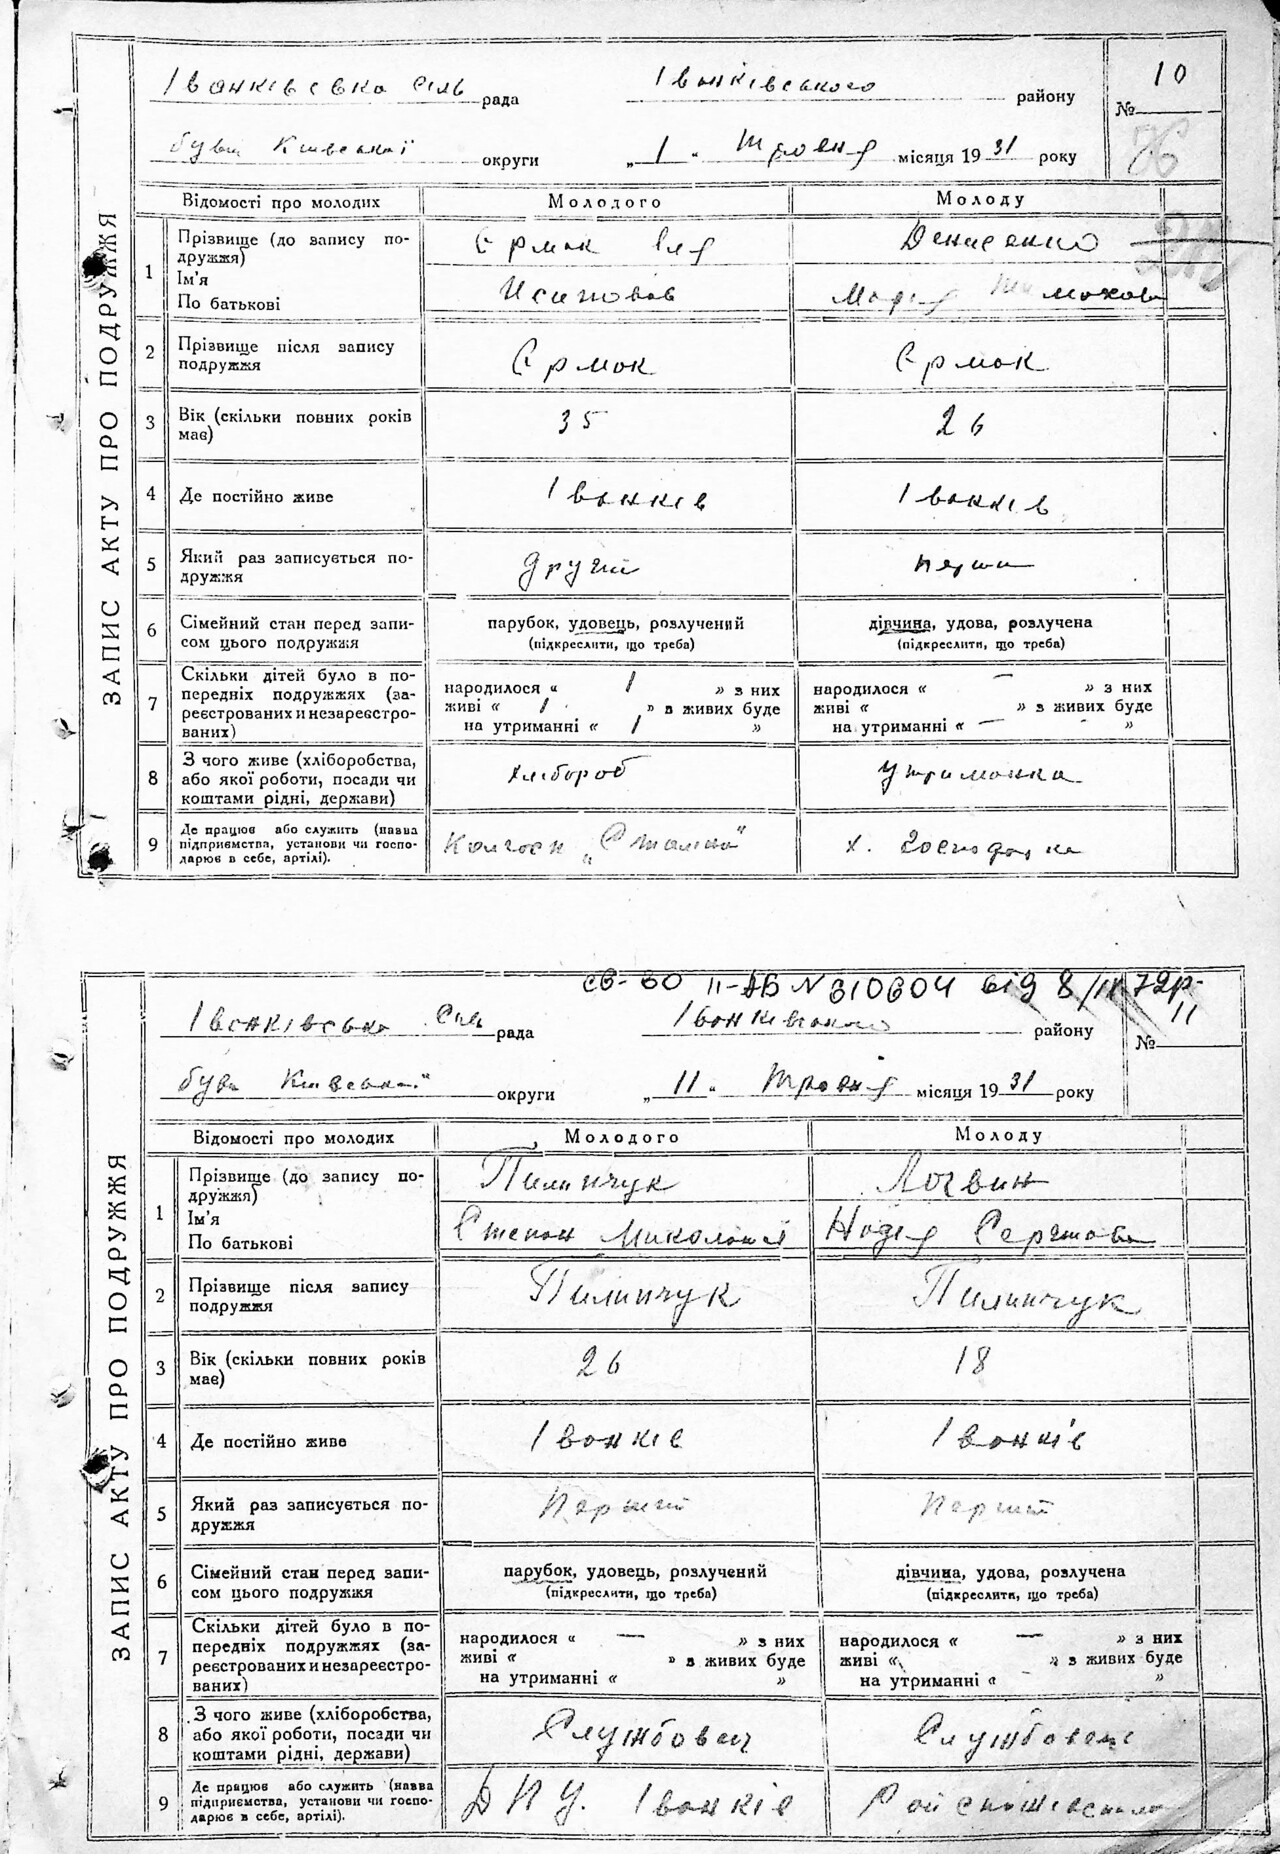 ЗАПИС АКТУ ПРО ПОДРУЖЖЯ
Іванківська сіль рада Іванківського району № 10
бувш Київської округи „1" травня місяця 1931 року
Відомості про молодих Молодого Молоду
1 Прізвище (до запису по- Єрмак Денисенко
дружжя)
Ім'я
По батькові Марія
2 Прізвище після запису Єрмак Єрмак
подружжя
3 Вік (скільки повних років 35 26
має)
4 Де постійно живе Іванків Іванків
5 Який раз записується по- другий перши
дружжя
6 Сімейний стан перед запи- парубок, удовець, розлучений дівчина, удова, розлучена
сом цього подружжя (підкреслити, що треба) (підкреслити, що треба)
7 Скільки дітей було в по-
передніх подружжях (за- народилося « 1 » з них народилося « — » з них
реєстрованих и незареєстро- живі « 1 » в живих буде живі « » в живих буде
ваних) на утриманні « 1 » на утриманні « — »
8 З чого живе (хліборобства, хлібороб утриманка
або якої роботи, посади чи
коштами рідні, держави)
9 Де працює або служить (назва Колгосп „Сталіна" х. господарка
підприємства, установи чи госпо-
дарює в себе, артілі).
св-во II-АБ N 310604 від 8/II 72р.
ЗАПИС АКТУ ПРО ПОДРУЖЖЯ
Іванківська сіль рада Іванківського району № 11
бувш Київської округи „11" травня місяця 1931 року
Відомості про молодих Молодого Молоду
1 Прізвище (до запису по- Пилипчук Логвин
дружжя)
Ім'я Степан Надія
По батькові
2 Прізвище після запису Пилипчук Пилипчук
подружжя
3 Вік (скільки повних років 26 18
має)
4 Де постійно живе Іванків Іванків
5 Який раз записується по- Перший Перший
дружжя
6 Сімейний стан перед запи- парубок, удовець, розлучений дівчина, удова, розлучена
сом цього подружжя (підкреслити, що треба) (підкреслити, що треба)
7 Скільки дітей було в по-
передніх подружжях (за- народилося « — » з них народилося « — » з них
реєстрованих и незареєстро- живі « » в живих буде живі « » в живих буде
ваних) на утриманні « » на утриманні « »
8 З чого живе (хліборобства, Службовец
або якої роботи, посади чи
коштами рідні, держави)
9 Де працює або служить (назва ДПУ. Іванків
підприємства, установи чи госпо-
дарює в себе, артілі).